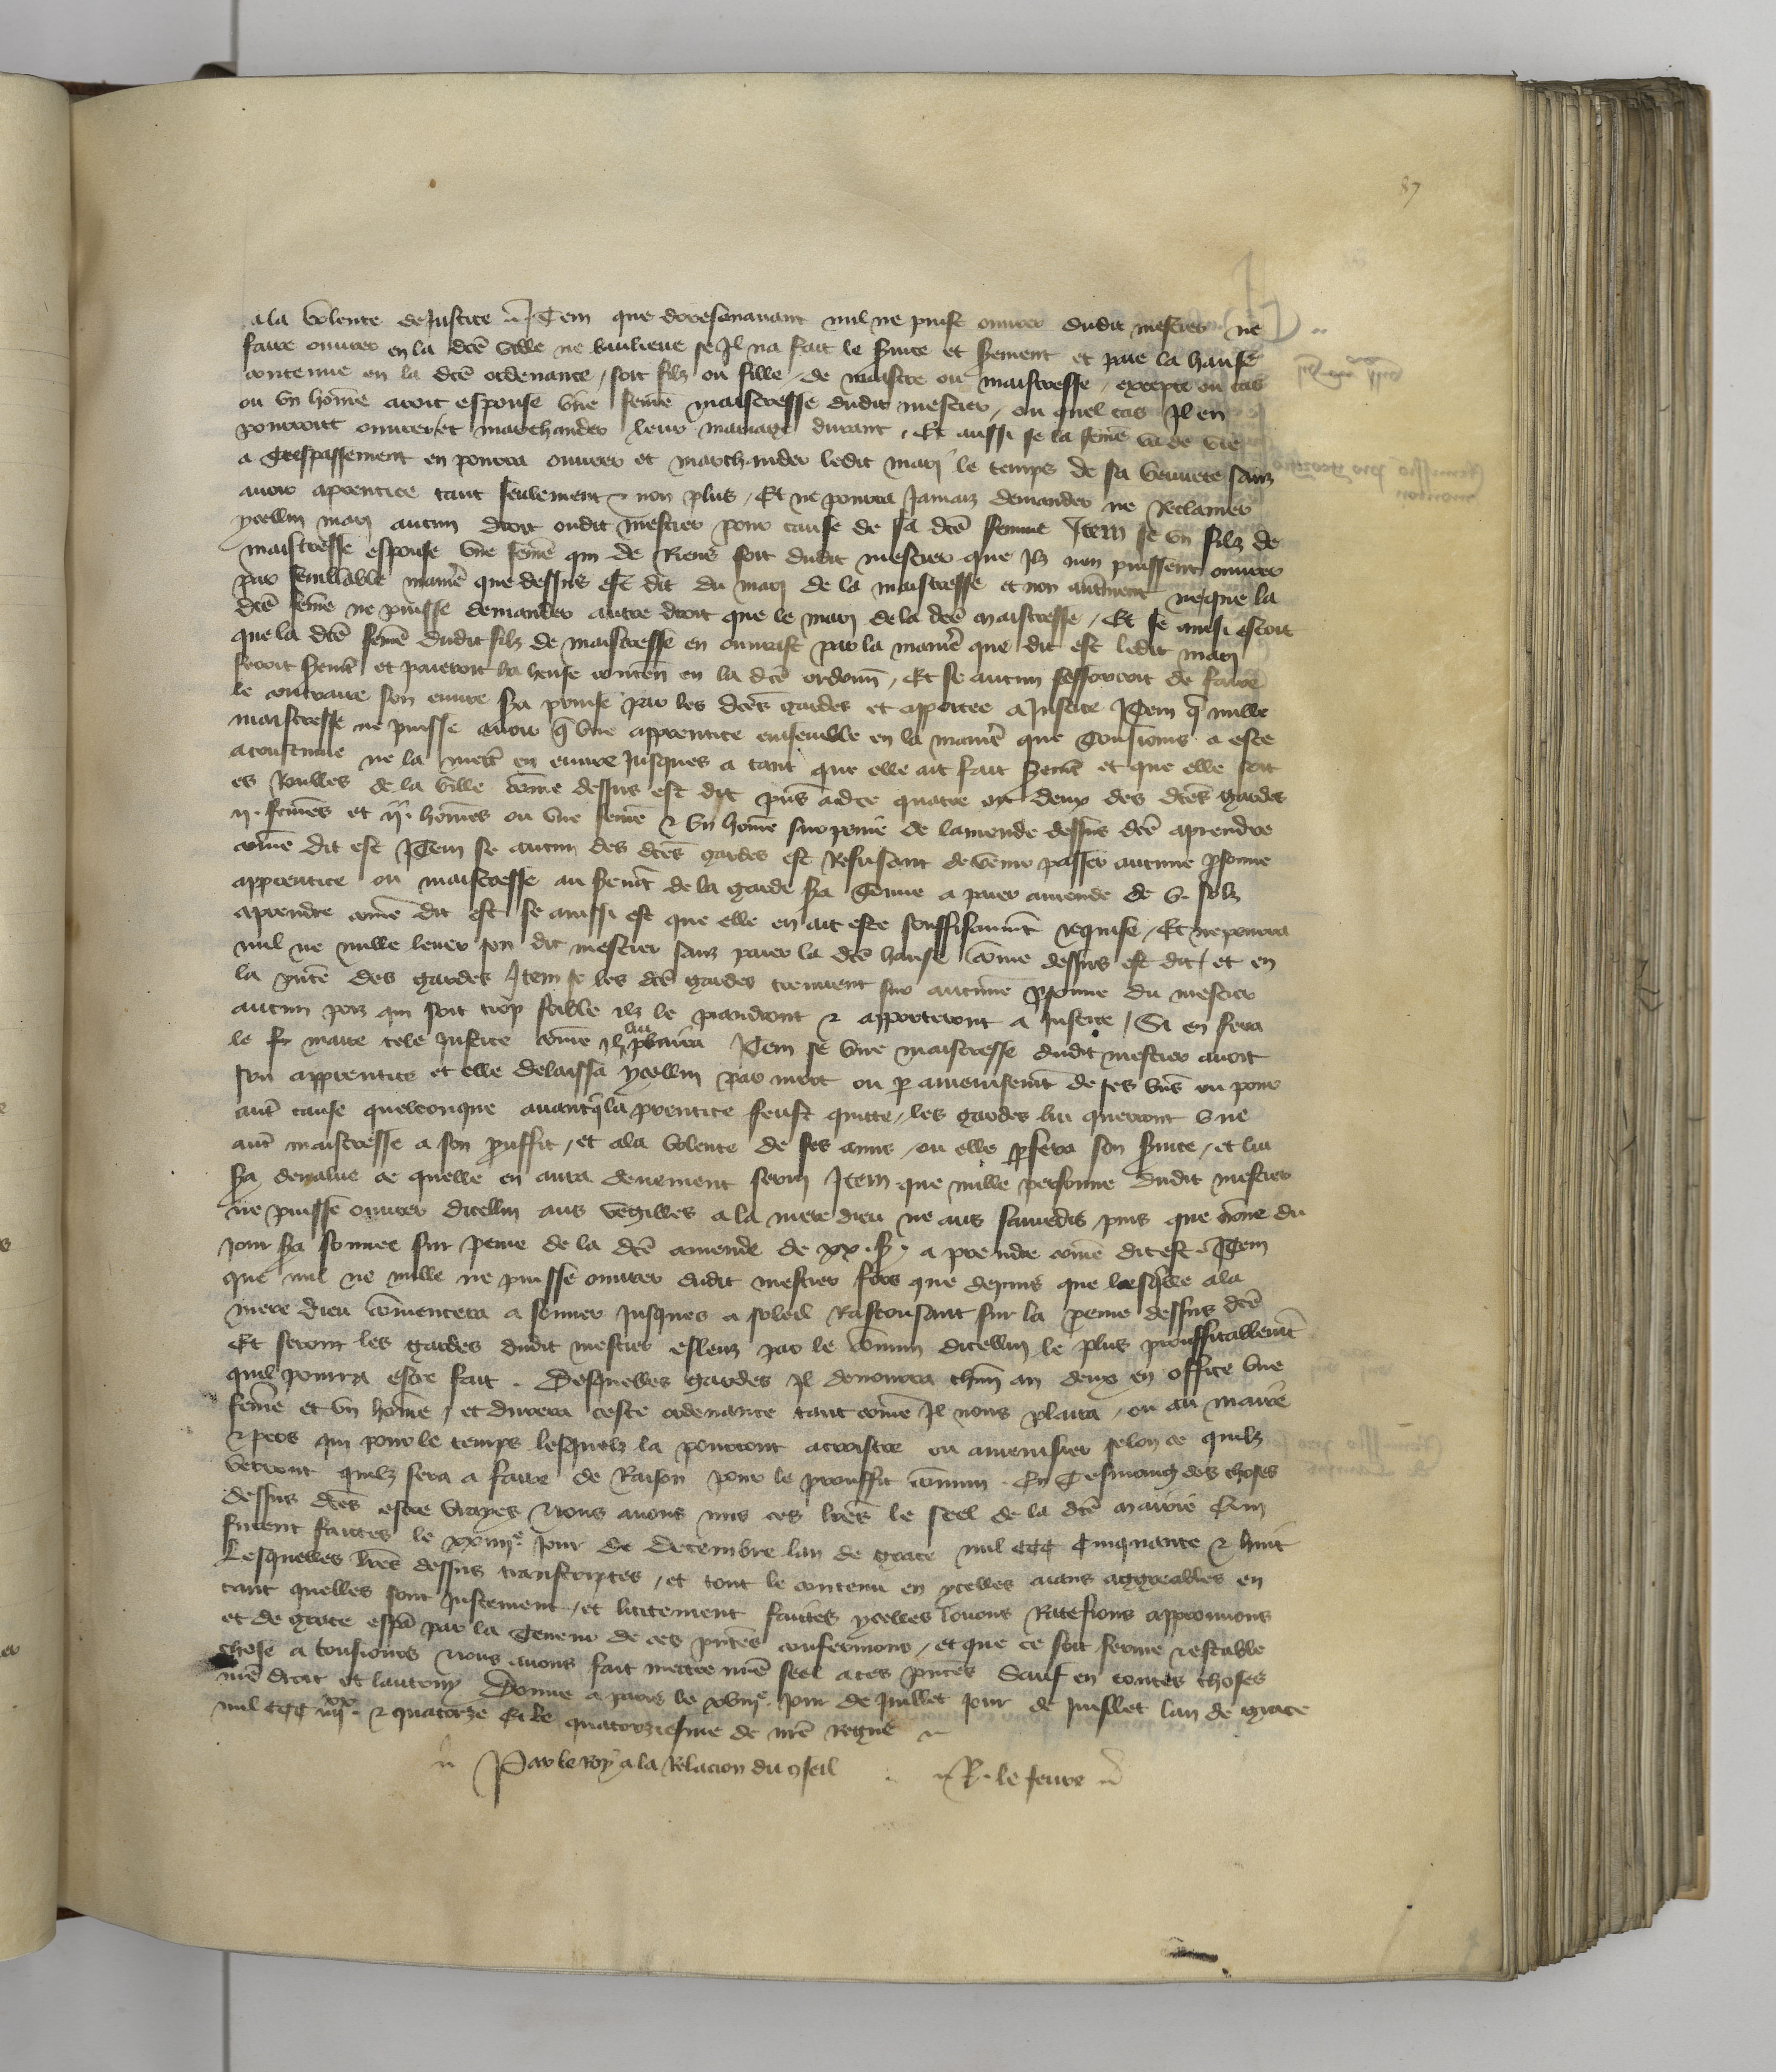 87
a la volente de Justice Item que doresenavant nul ne puist ouvrer dudit mestier ne
faire ouvrer en la dce ville ne banlieue se Il na fait le Svice et Serement et paie la hanse
contenue en la dce ordenance, soit filz ou fille, de maistre ou maistresse, excepte ou cas
ou un home avoit espouse une feme maistresse dudit mestier, ou quel cas Il en
pourroit ouvrer et marchander leur mariage durant, Et aussi se la feme va de vie
a trespassement en pourra ouvrer et marchander ledit mary le temps de sa veuvete sanz
avoir aprentice tant seulement & non plus, Et ne pourra Jamaiz demander ne Reclamer
ycellui mary aucun droit oudit mestier pour cause de sa dce femme Item se un filz de
maistresse espouse une feme qui de Riens soit dudit mestier que Ilz non puissent ouvrer
par semblable maniere que dessus est dit du mary de la maistresse et non autment ne que la
dce feme ne puisse demander autre droit que le mary de la dce maistresse, Et se ainsi estoit
que la dce feme dudit filz de maistresse en ouvrast par la maniere que dit est ledit mary
feroit Semt et paieroit la hense conten en la dce ordonn, Et se aucun sefforcoit de faire
le contraire son euvre sa prinse par les dces gardes et apportee a Justice Item q nulle
maistresse ne puisse avoir q une apprentice ensemble en la maniere que tousiours a este
acoustume ne la mett en euvre Jusques a tant que elle ait fait Semt et que elle soit
es Roulles de la ville come dessus est dit pns ad ce quatre ou deux des dces gardes
ij. femes et ij. homes ou une feme & un home sur peine de lamende dessus dce aprendre
come dit est Item se aucun des dces gardes est Refusant de venir passer aucune psonne
apprentice ou maistresse au Semt de la garde sa tenue a paier amende de v. solz
aprendre come dit est se ainssi est que elle en ait este souffisaument requise, Et ne pourra
nul ne nulle lever son dit mestier sanz paier la dce hanse come dessus est dit, et en
la pnce des gardes Item se les dces gardes treuvent sur aucune psonne du mestier
aucun pois qui soit trop feible ilz le prandront & apporteront a Justice, Si en fera
le  maire tele Justice come Il lui plaira Item se une maistresse dudit mestier avoit
son apprentice et elle delaissa ycellui par mort ou p amenuisemt de ses bns ou pour
aut cause quelconque avant q la prentice feust quitte, les gardes lui querront une
aut maistresse a son pruffit, et a la volente de ses amis, ou elle pfera son Svice, et lui
sa devalue ce quelle en aura deuement servy Item que nulle personne dudit mestier
ne puisse ouvrer dicellui aus vegilles a la mere dieu ne aus samedis puis que none du
Jour sa sonnee sur peine de la dce amende de xx. s. a prendre come dit est Item
que nul ne nulle ne puisse ouvrer dudit mestier fors que depuis que  a la
mere dieu comencera a sonner Jusques a soleil Rasconsant sur la peine dessus dce
Et seront les gardes dudit mestier esleuz par le comun dicellui le plus prouffitablemt
quil pourra estre fait. Desquelles gardes Il demourra chun an deux en office une
feme et un home, et durera ceste ordenance tant come Il nous plaira, ou au maire
& pers qui pour le temps lesquelz la pourront acroistre ou amenusier selon ce quilz
verront quilz sera a faire de Raison pour le prouffit comun. En Tesmoing des choses
dessus dces estre vrayes Nous avons mis ces lres le seel de la dce mairie Qui
furent faictes le xxiiije Jour de Decembre lan de grace mil CCC Cinquante & huit
Lesquelles lres dessus transcriptes, et tout le contenu en ycelles aians aggreables en
tant quelles sont Justement, et licitement faictes ycelles louons Ratefions approuvons
et de grace espal par la Teneur de ces pntes confermons, et que ce soit ferme & estable
chose a tousiours Nous avons fait mettre nre seel a ces pntes Sauf en toutes choses
nre droit et lautruy Donne a paris le xviije. Jour de Juillet Jour de Juillet lan de grace
mil CCC iiijxx. & quatorze Et le quatorziesme de nre Regne
Par le Roy a la Relacion du 9seil R. le fevre